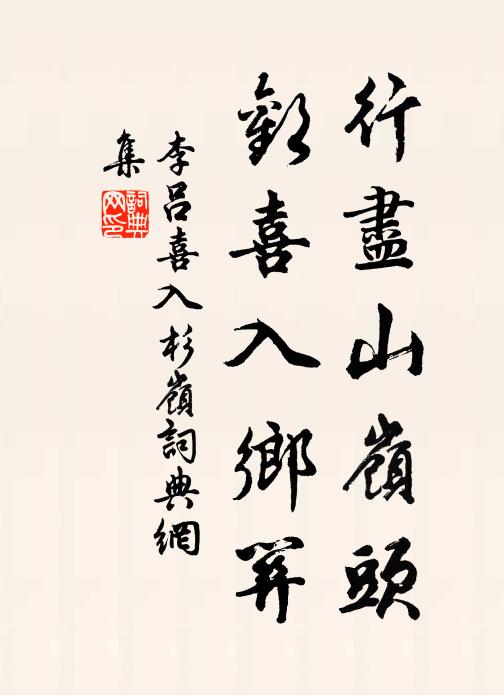 行盡山嶺頭
歡喜入鄉關
李呂喜入杉嶺詞典網
集
詞典网印